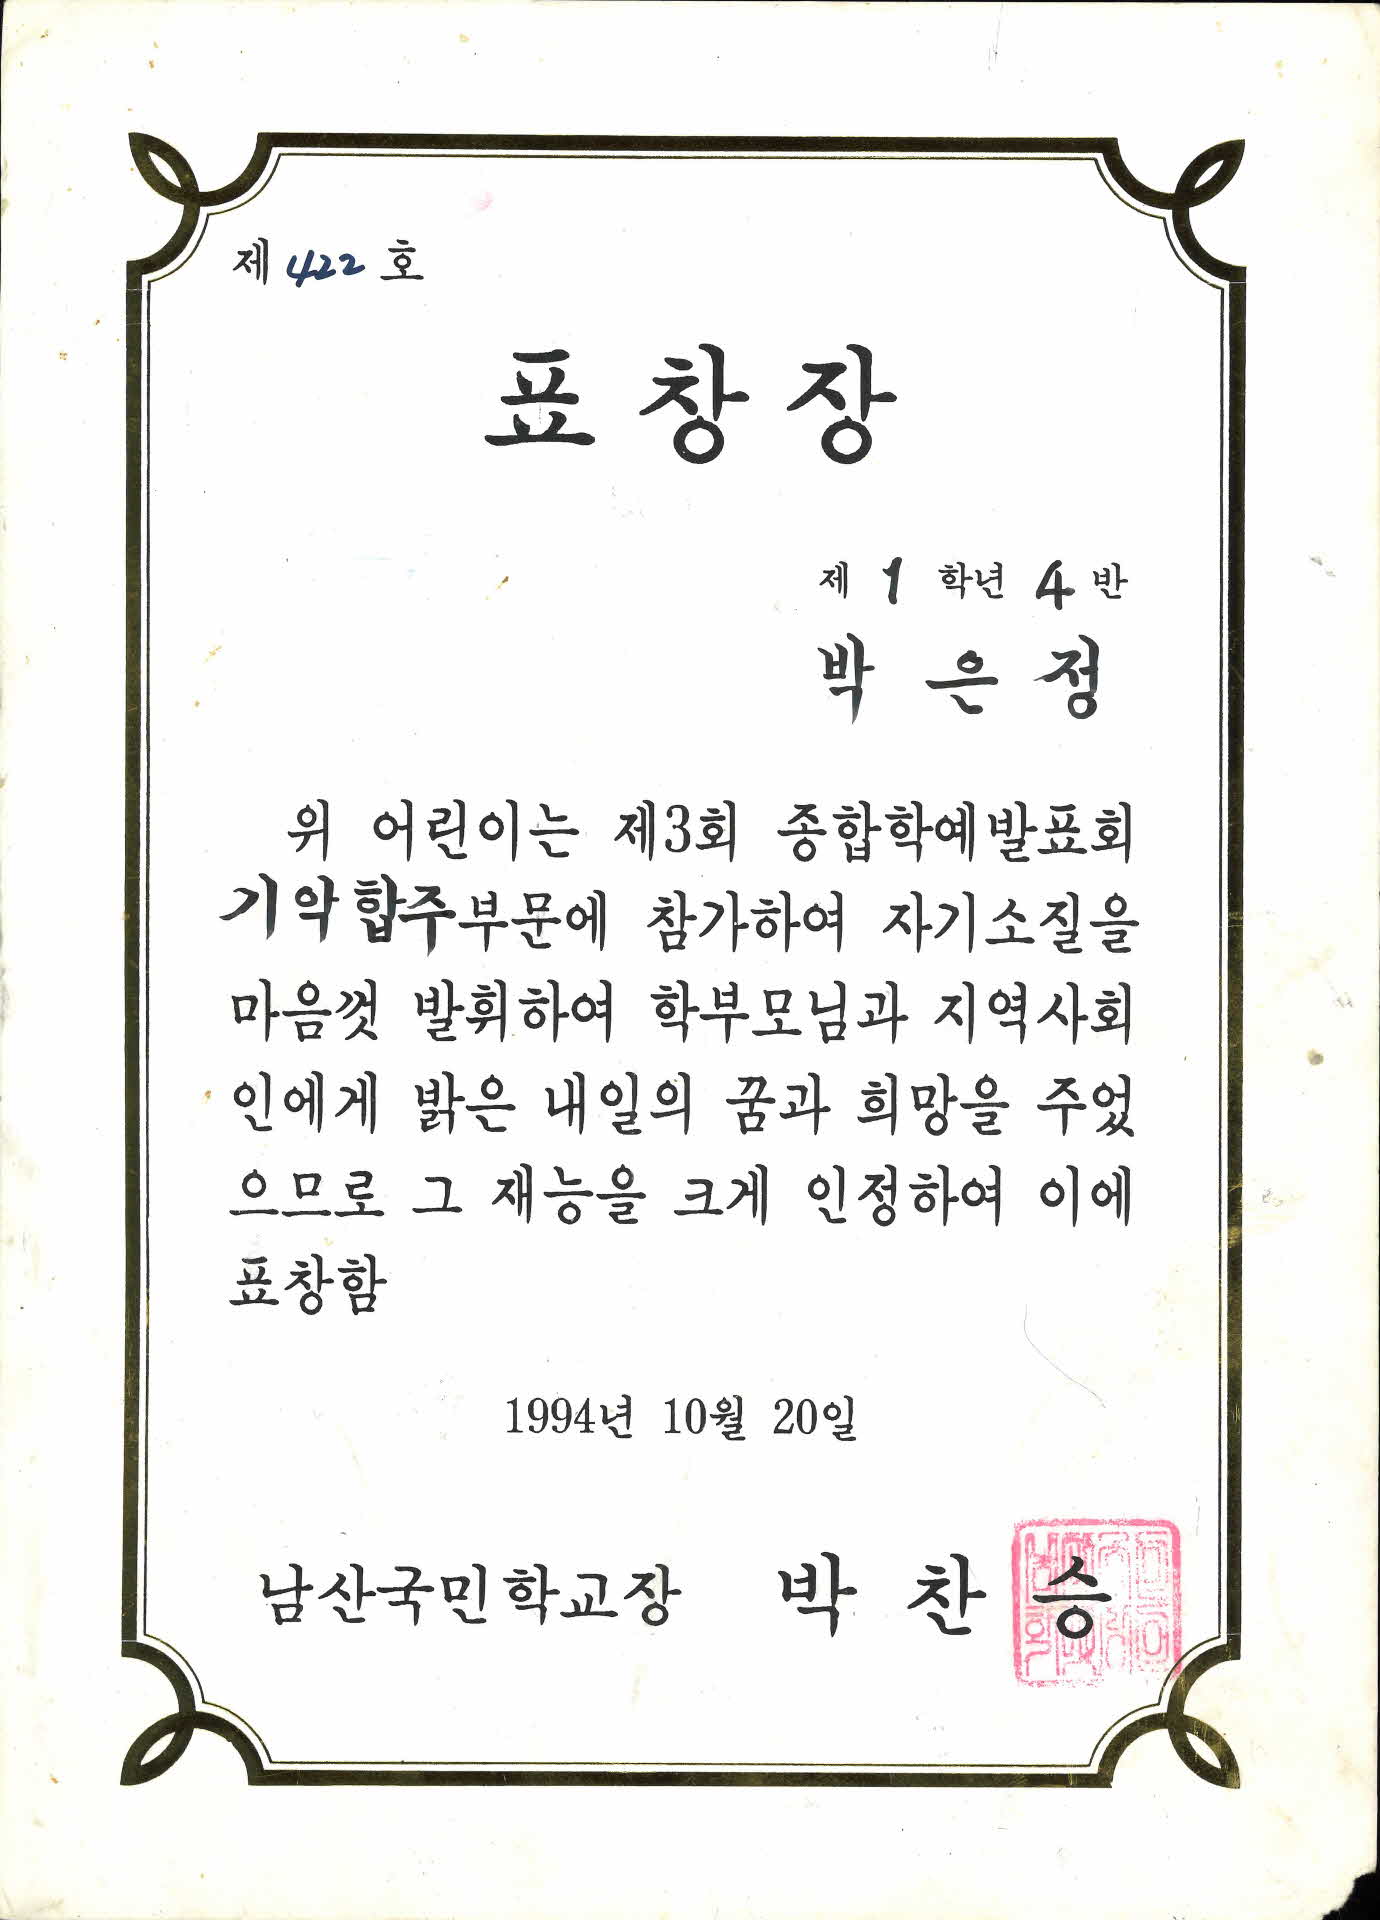 제 422 호
표창장
제 1 학년 4 반
박 은 정
위 어린이는 제3회 종합학예발표회
기악합주부문에 참가하여 자기소질을
마음껏 발휘하여 학부모님과 지역사회
인에게 밝은 내일의 꿈과 희망을 주었
으므로 그 재능을 크게 인정하여 이에
표창함
1994년 10월 20일
남산국민학교장 박 찬 승